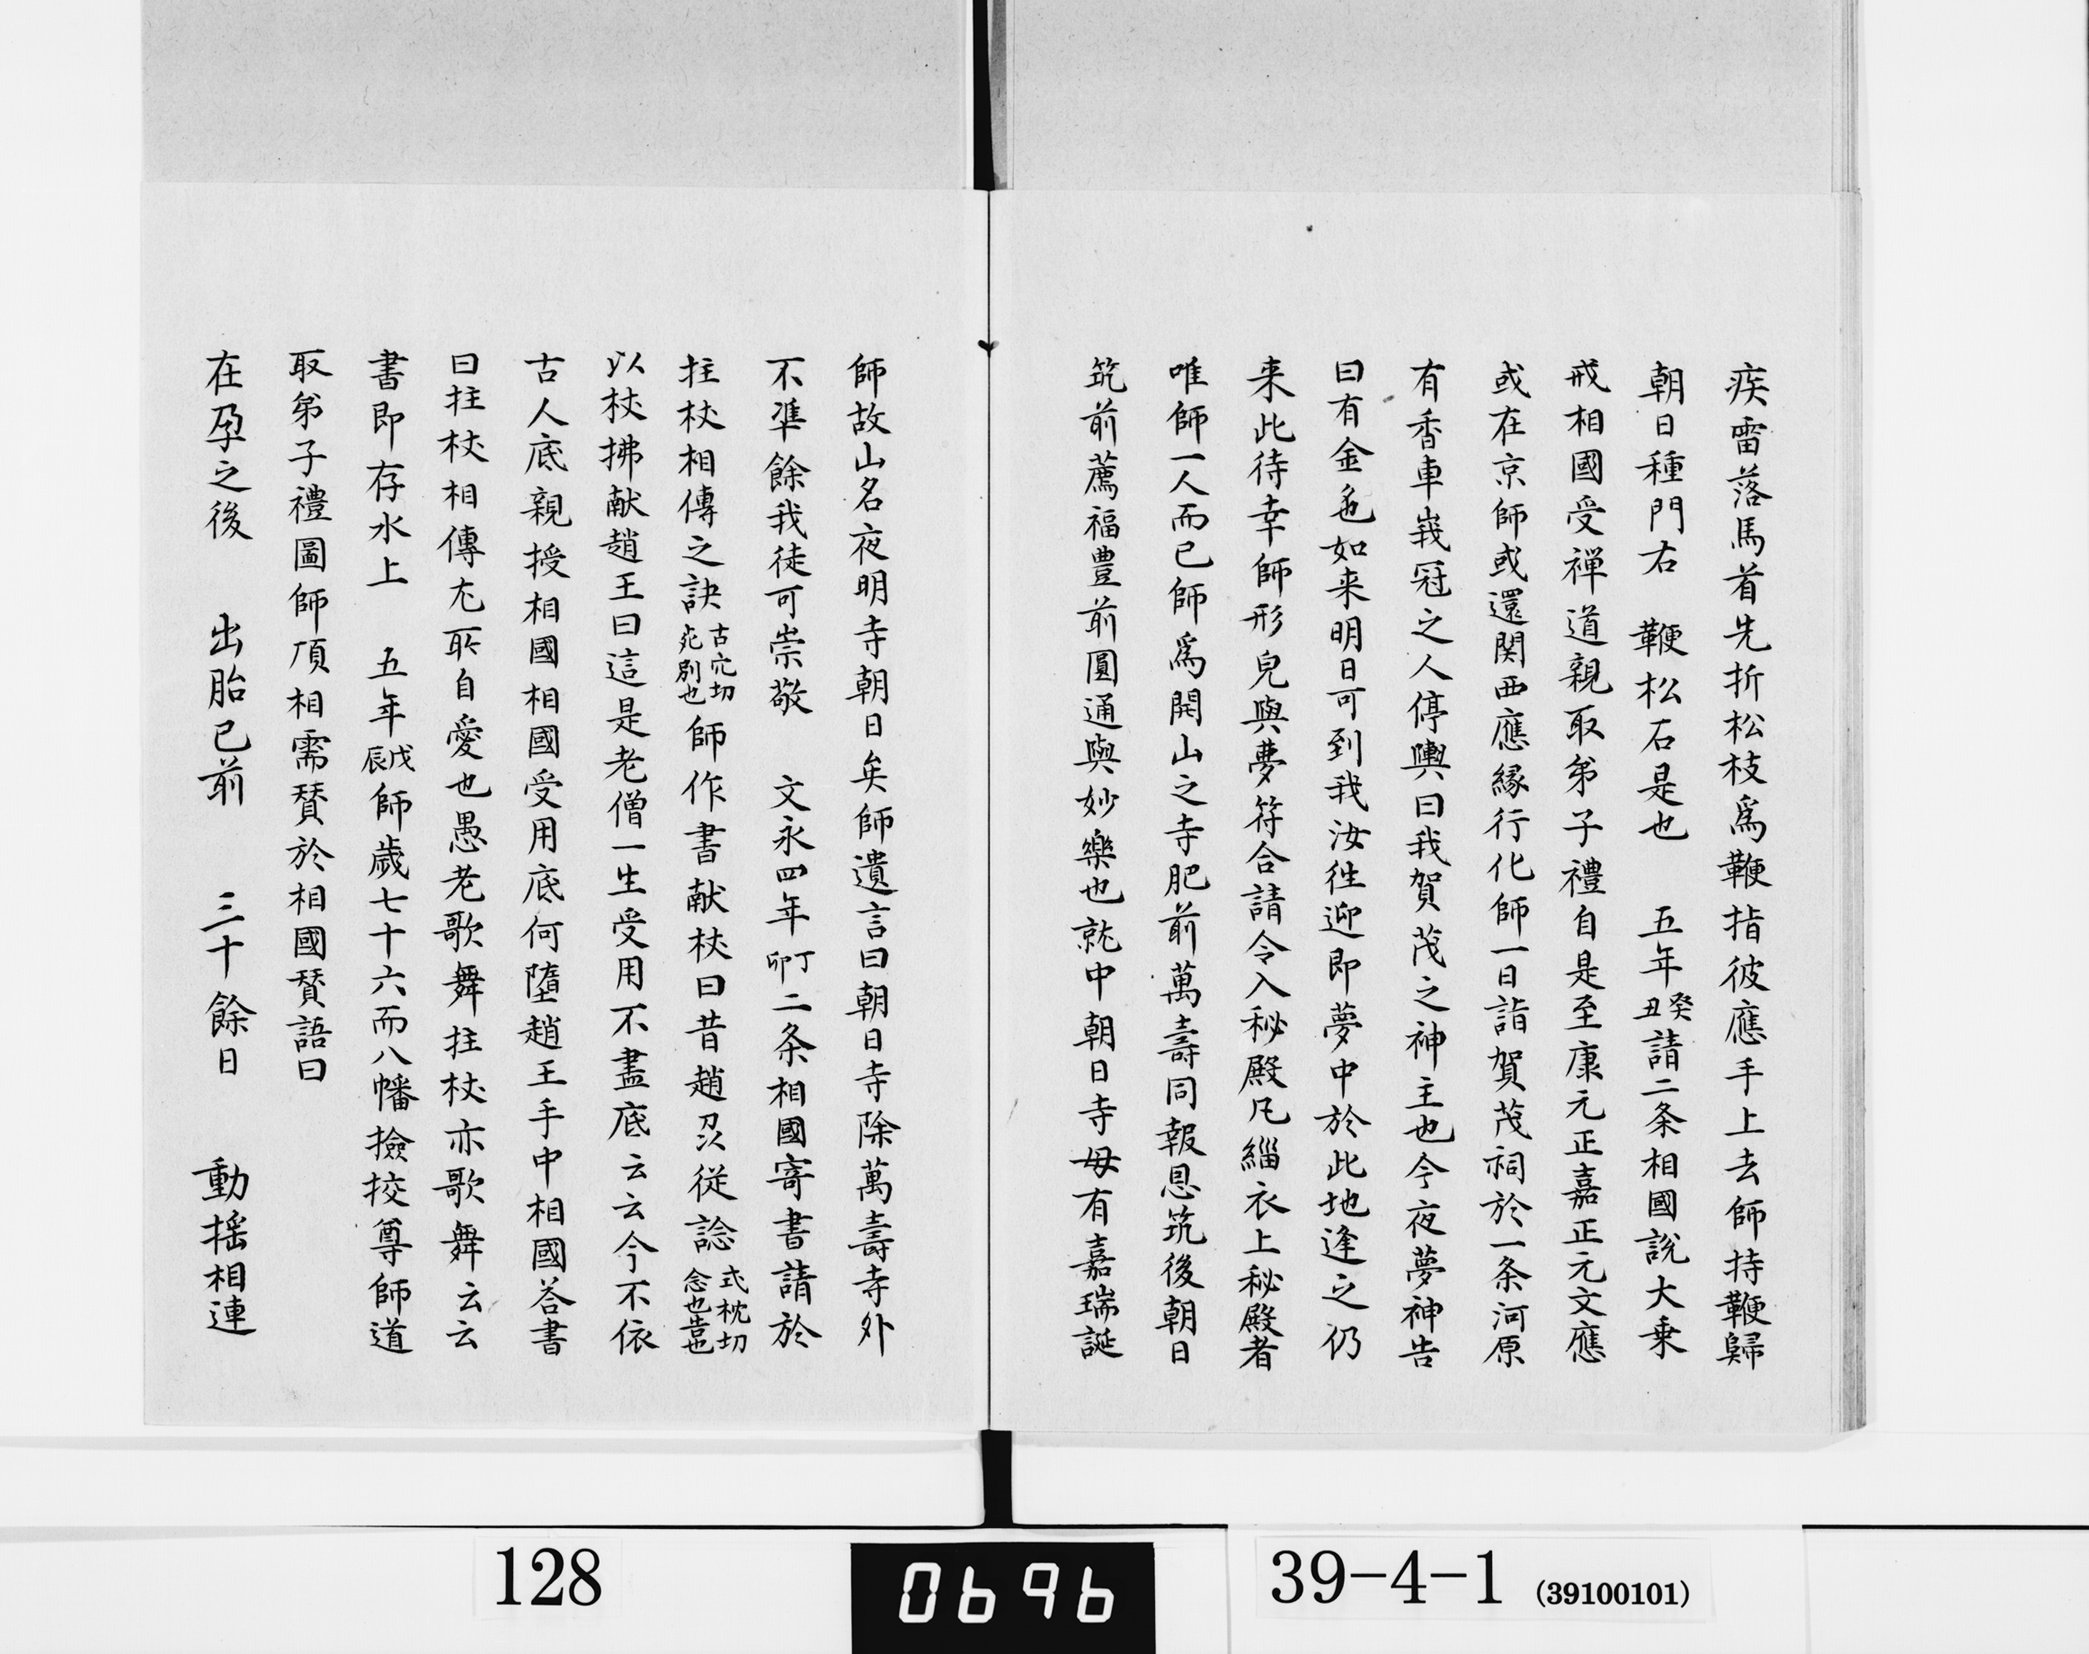 疾雷落馬首先折松枝爲鞭指彼應手上去師持鞭歸
朝日種門右　鞭松石是也　五年癸丑請二条相國説大乗
戒相國受禅道親取弟子禮自是至康元正嘉正元文應
或在京師或還関西應縁行化師一日詣賀茂祠於一条河原
有香車峩冠之人停輿曰我賀茂之神主也今夜夢神告
曰有金色如来明日可到我汝徃迎即夢中於此地逢之仍
来此待幸師形皃與夢符合請令入秘殿凡緇衣上秘殿者
唯師一人而已師爲開山之寺肥前萬壽同報恩筑後朝日
筑前薦福豊前圓通與妙樂也就中朝日寺毋有嘉瑞誕
師故山名夜明寺朝日矣師遺言曰朝日寺除萬壽寺外
不準餘我徒可崇敬　文永四年丁卯二条相國寄書請於
拄杖相傳之訣古穴切死別也師作書献杖曰昔趙王従諗式枕切念也告也
以杖拂献趙王曰這是老僧一生受用不盡底云云今不依
古人底親授相國相國受用底何墮趙王手中相國答書
曰拄杖相傳尤所自愛也愚老歌舞拄杖亦歌舞云云
書即存水上　五年戊辰師歳七十六而八幡撿挍尊師道
取弟子禮圖師頂相需賛於相國賛語曰
在孕之後　出胎已前　三十餘日　動揺相連
128
0696
39-4-1 (39100101)